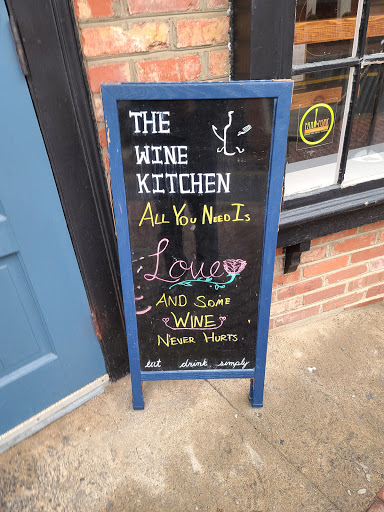 THE
WINE
KITCHEN
ALL YOU NEED IS
Love
AND SOME
WINE
NEVER HURTS.
eat drink simply